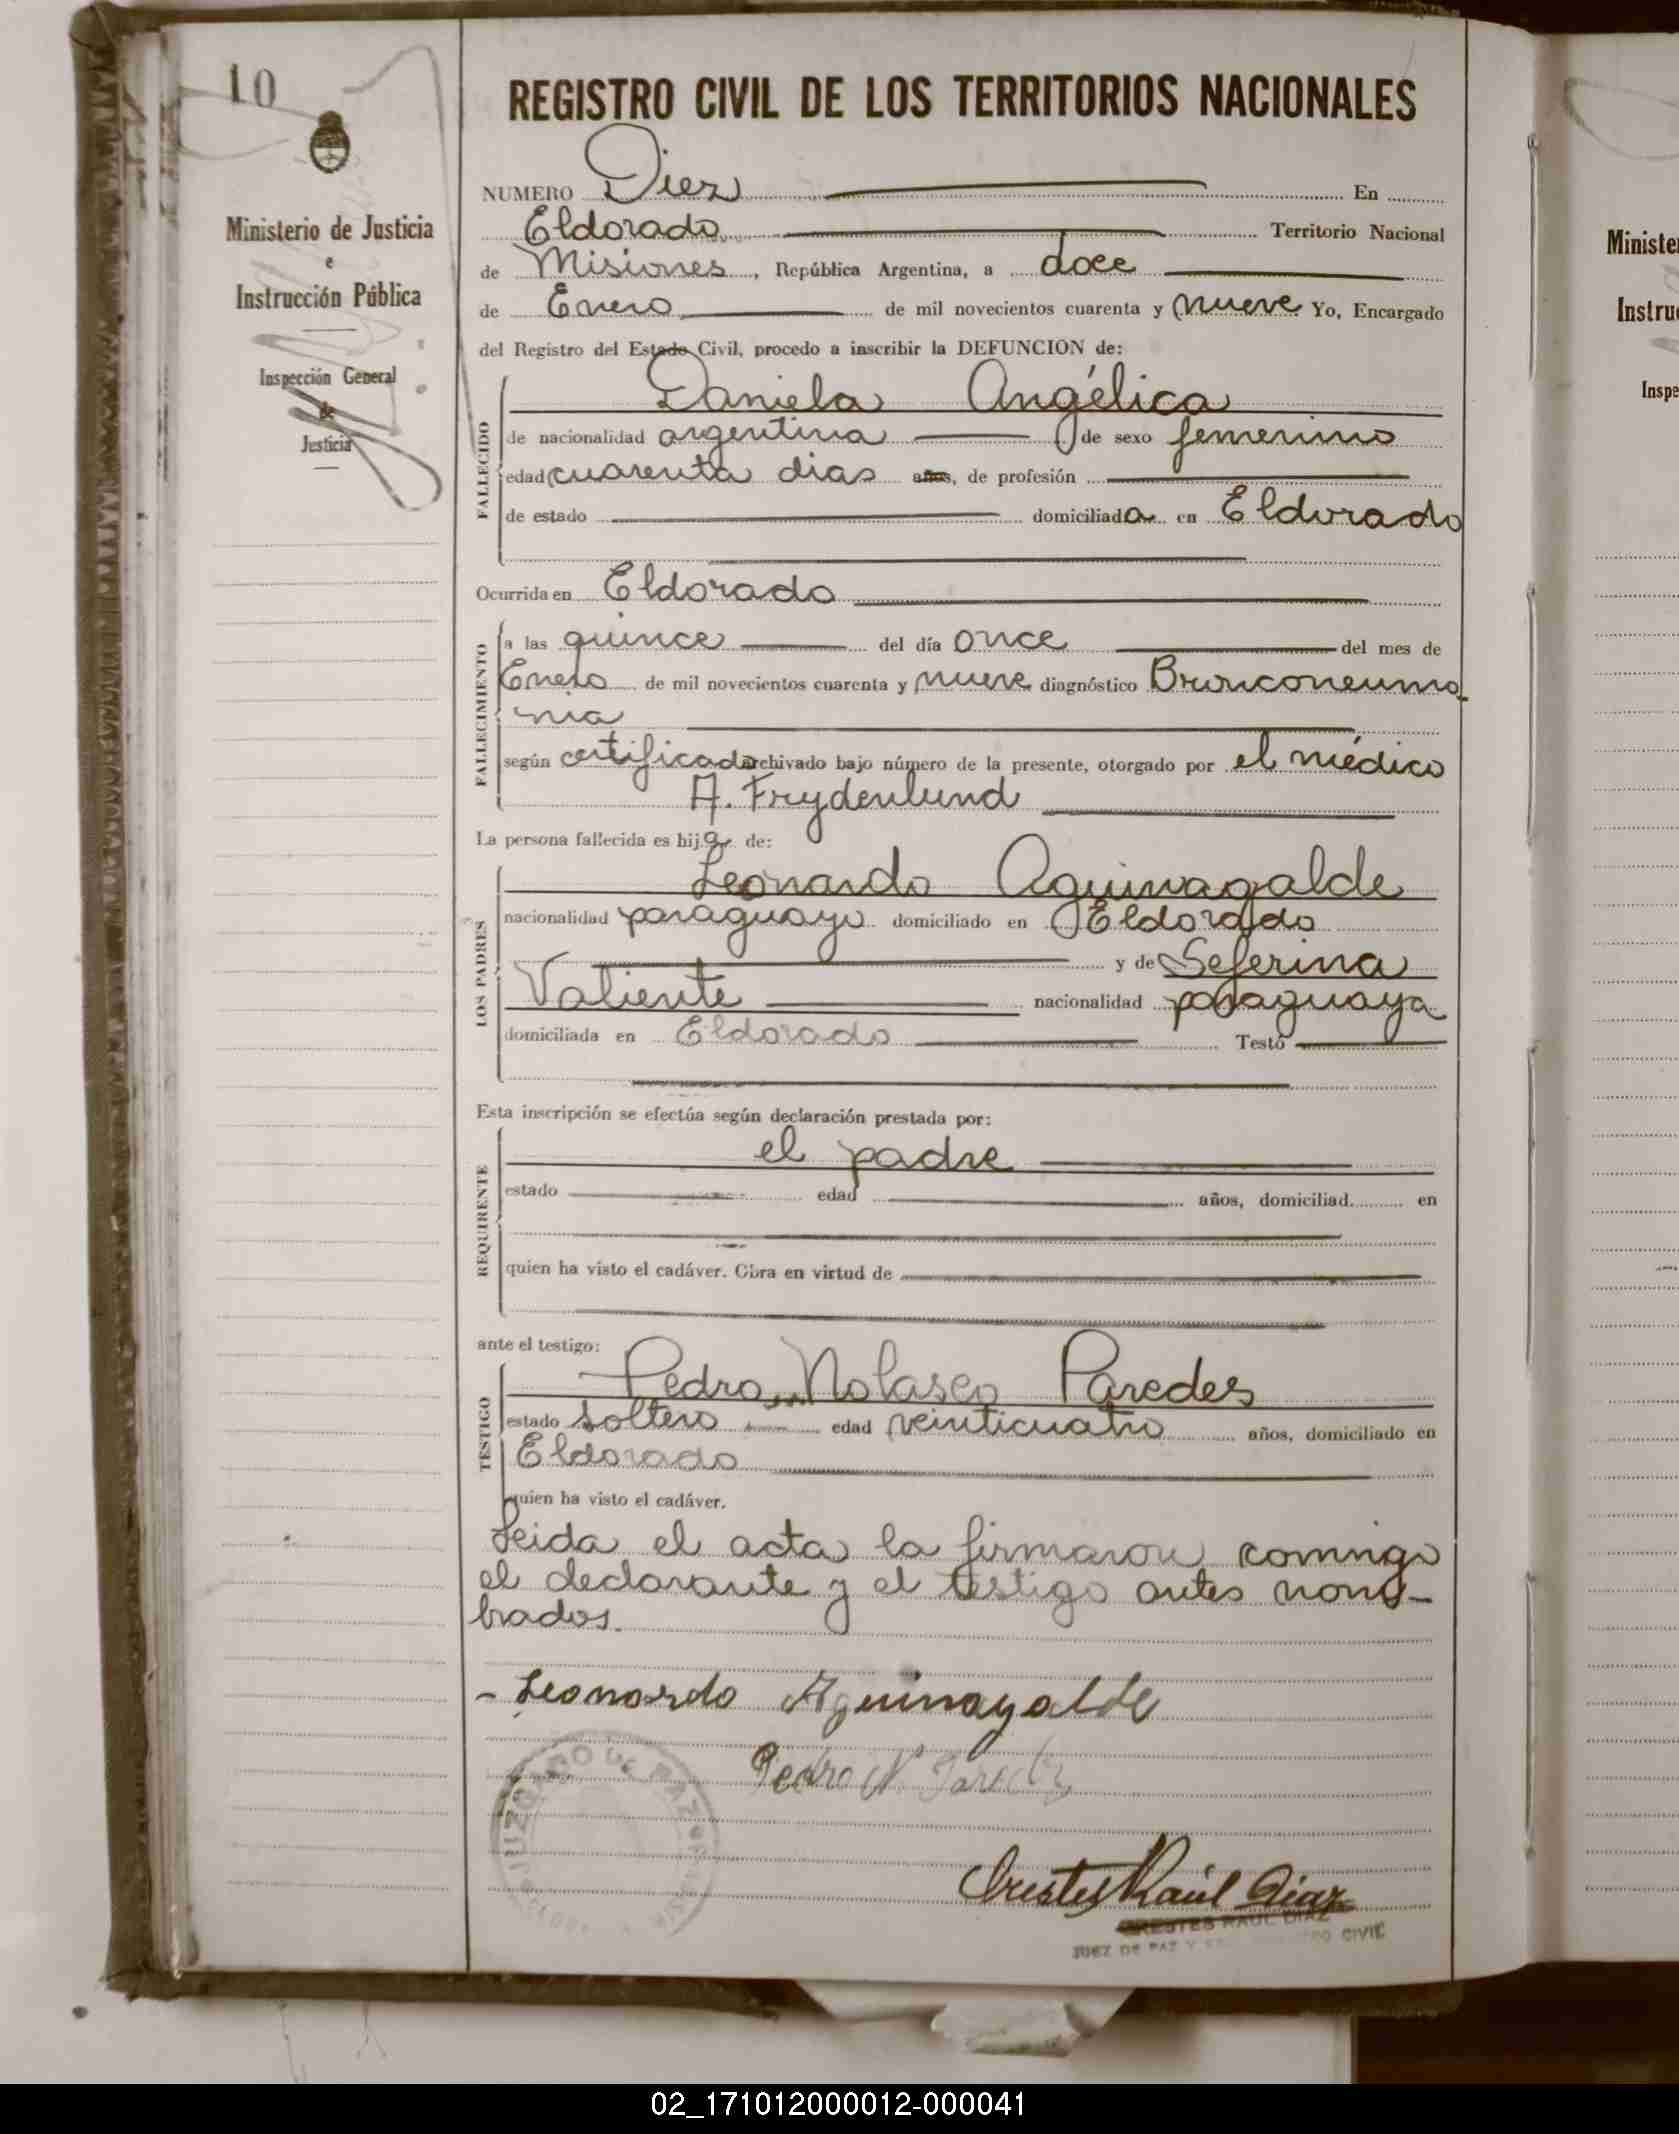 10
Ministerio de Justicia
e
Instrucción Pública
Inspección General
de
Justicia
REGISTRO CIVIL DE LOS TERRITORIOS NACIONALES
NUMERO Diez En
Eldorado Territorio Nacional
de Misiones, República Argentina, a doce
de Enero de mil novecientos cuarenta y nueve Yo, Encargado
del Registro del Estado Civil, procedo a inscribir la DEFUNCION de:
FALLECIDO
Daniela Angélica
de nacionalidad argentina de sexo femenino
edad cuarenta dias años, de profesión
de estado domiciliada en Eldorado
Ocurrida en Eldorado
FALLECIMIENTO
a las quince del día once del mes de
Enero de mil novecientos cuarenta y nueve diagnóstico Bronconeumo-
nia
según certificado archivado bajo número de la presente, otorgado por el médico
A. Frydenlund
La persona fallecida es hija de:
LOS PADRES
Leonardo Aguinagalde
nacionalidad paraguayo domiciliado en Eldorado
y de Seferina
Valiente nacionalidad paraguaya
domiciliada en Eldorado Testó
Esta inscripción se efectúa según declaración prestada por:
REQUIRENTE
el padre
estado edad años, domiciliad en
quien ha visto el cadáver. Obra en virtud de
ante el testigo:
TESTIGO
Pedro Nolasco Paredes
estado soltero edad veinticuatro años, domiciliado en
Eldorado
quien ha visto el cadáver.
Leida el acta la firmaron comnigo
el declarante y el testigo antes nom-
brados.
- Leonardo Aguinagalde
Pedro N. Paredes
JUZGADO DE PAZ
Orestes Raúl Díaz
ORESTES RAUL DIAZ
JUEZ DE PAZ Y CIVIL
Ministe
Instru
Inspe
02_171012000012-000041